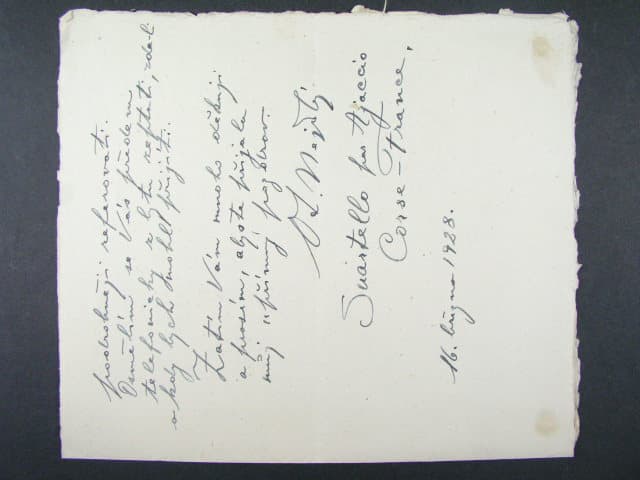 podrobněji referovati.
Osmělím se Vás předem
telefonicky z bytu zeptati, zda-li
a kdy bych směl přijíti.
Zatím Vám mnoho děkuji
a prosím, abyste přijala
můj upřímný pozdrav.
Ot. Nejedlý
Suartello per Ajaccio
Corse - France,
16. března 1928.